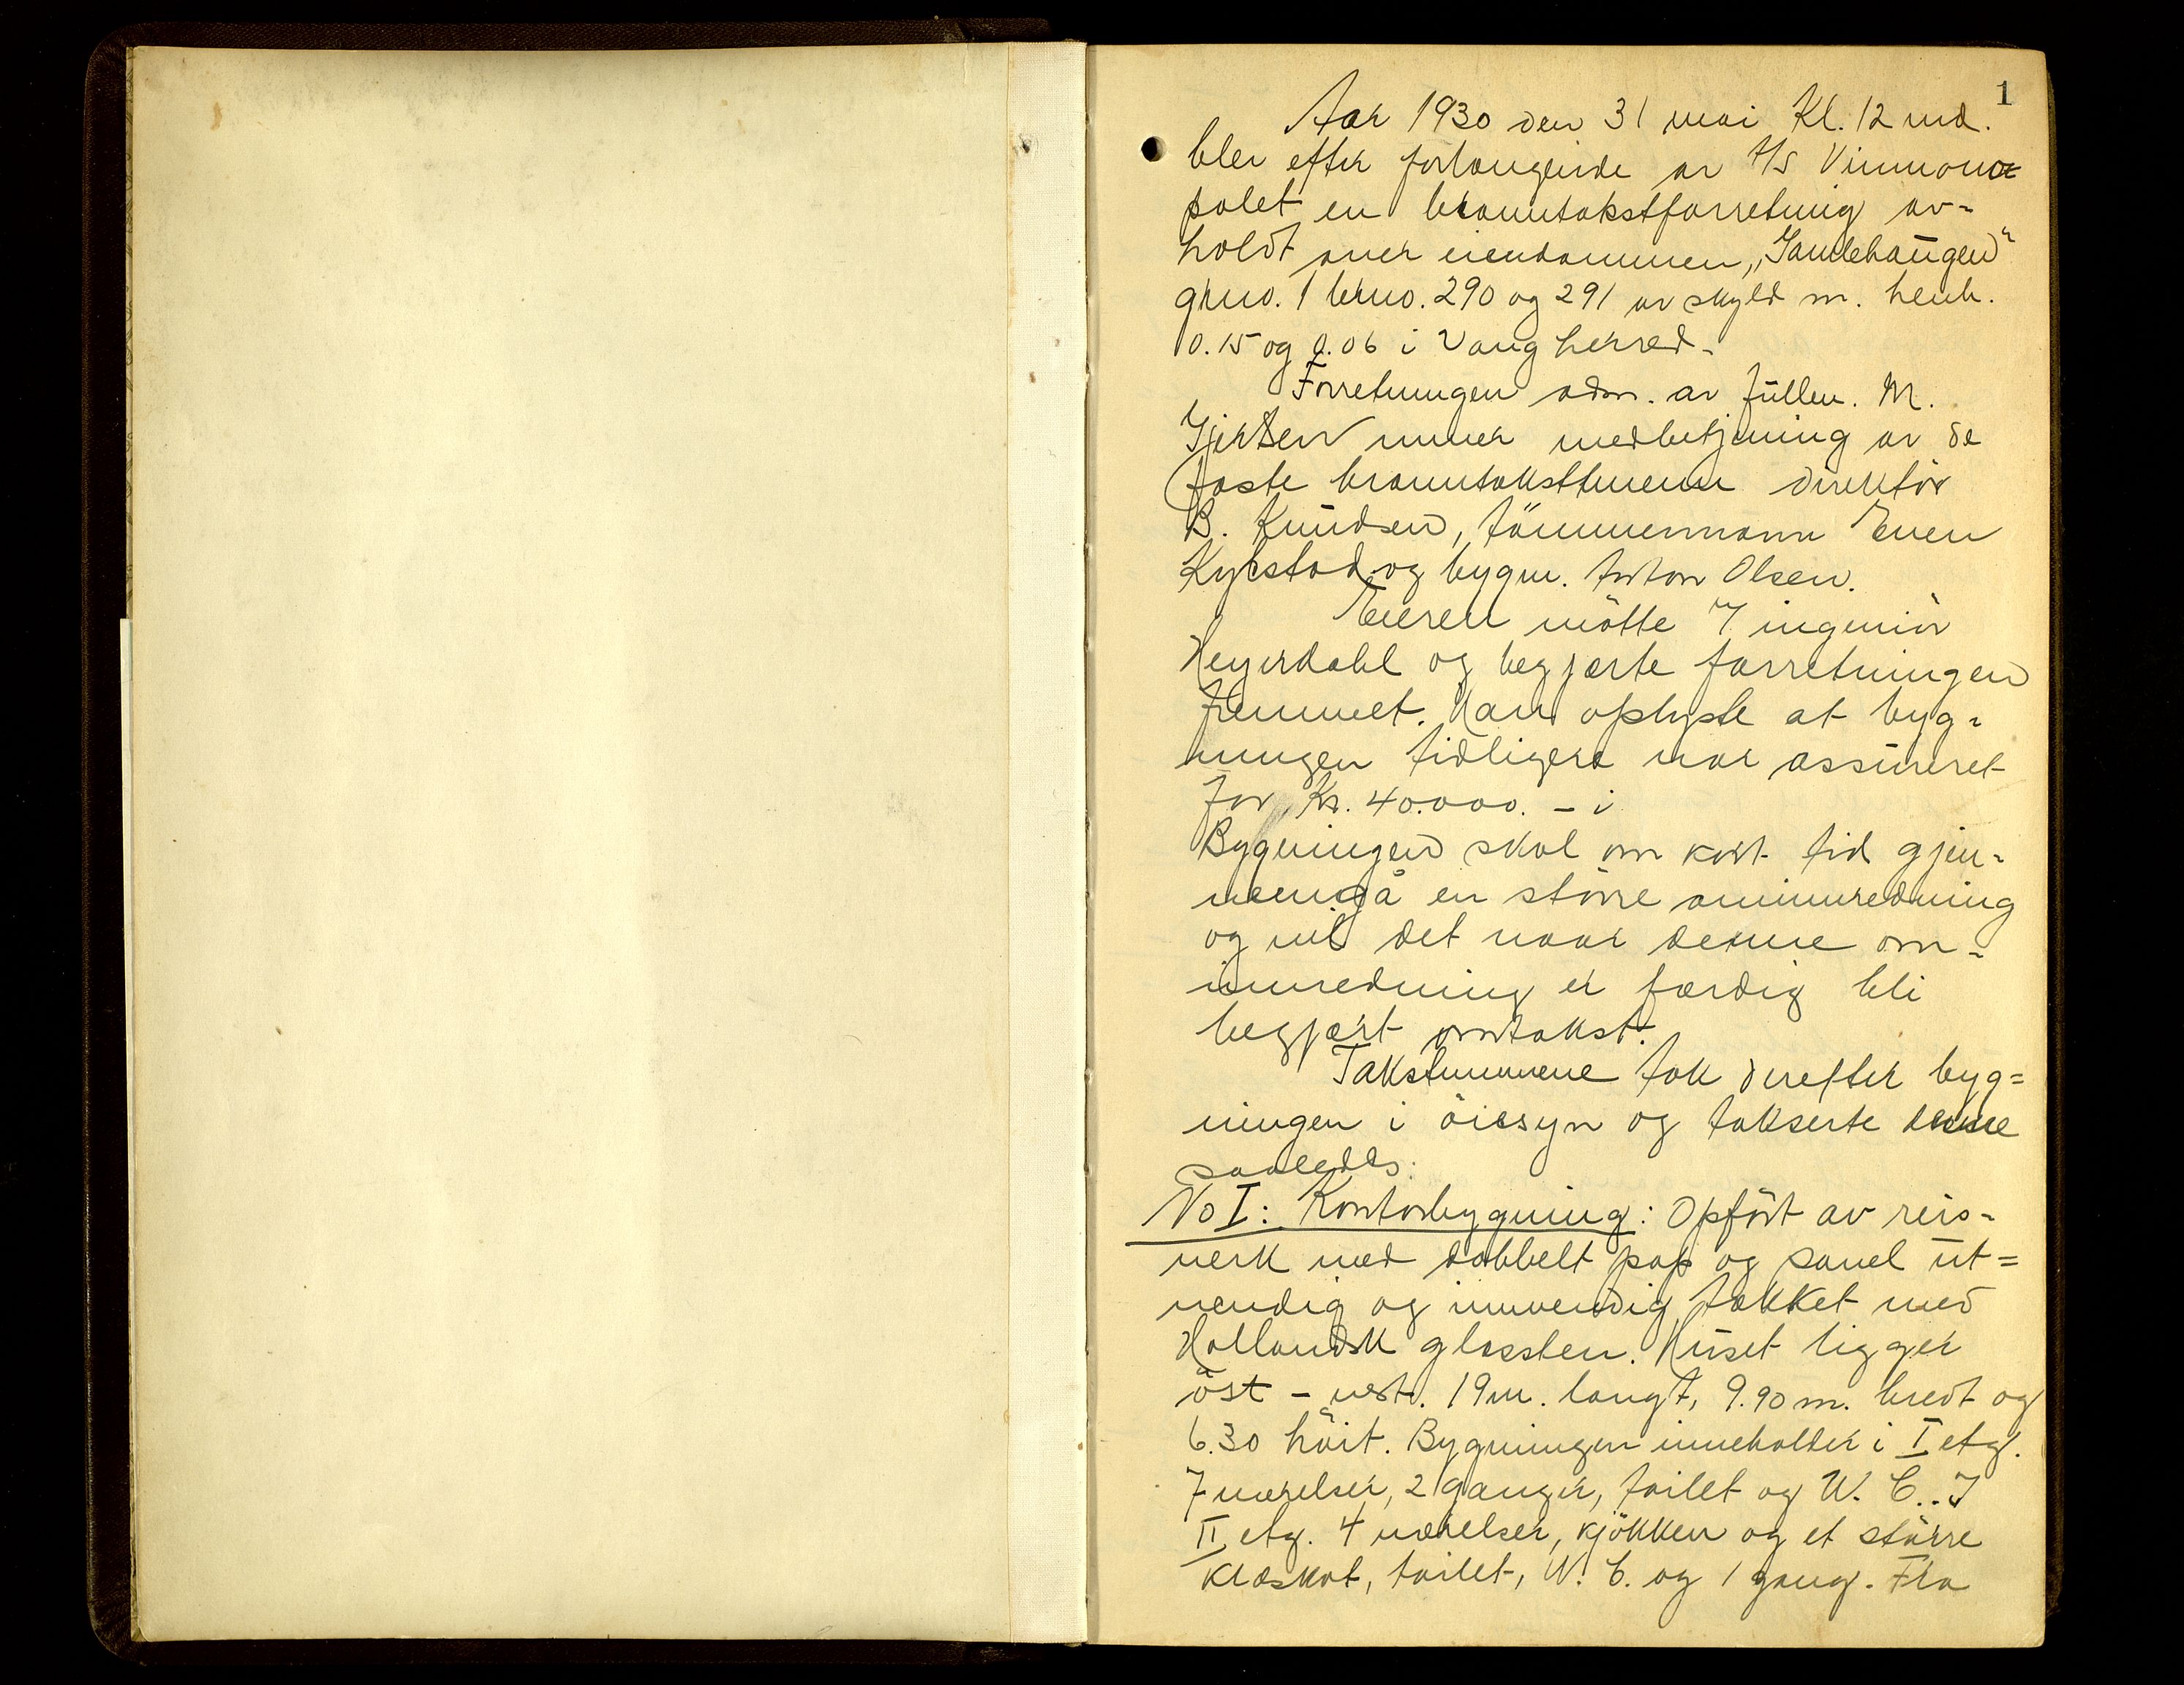 1
Aar 1930 den 31 mai Kl. 12 md.
blev efter forlangende av A/S Vinmono-
polet en branntakstforretning av-
holdt over eiendommen "Sandehaugen"
grno. 1 brno. 290 og 291 av skyld m. henh.
0.15 og 0.06 i Vang herred.
Forretningen adm. av fullm. M.
Gjertsen under medbetjening av de
faste branntakstmenn direktör
B. Knudsen, tömmermann Even
Kykstad og bygm. Anton Olsen.
Eieren mötte v/ ingeniör
Heyerdahl og begjærte forretningen
fremmet. Han oplyste at byg-
ningen tidligere var assureret
for Kr. 40.000. - i
Bygningen skal om kort tid gjen-
nemgå en större ominnredning
og vil det naar denne om-
innredning er færdig bli
begjært omtakst.
Takstmennene tok derefter byg=
ningen i öiesyn og takserte denne
saaledes:
No I: Kontorbygning: Opfört av reis-
verk med dobbelt pap og panel ut=
vendig og innvendig, tækket med
Hollandsk glassten. Huset ligger
öst - vest. 19 m. langt, 9.90 m. bredt og
6.30 höit. Bygningen inneholder i I etg.
7 værelser, 2 ganger, toilet og W. C.. I
II etg. 4 værelser, kjökken og et större
klæskot, toilet, W. C. og 1 gang. Fra